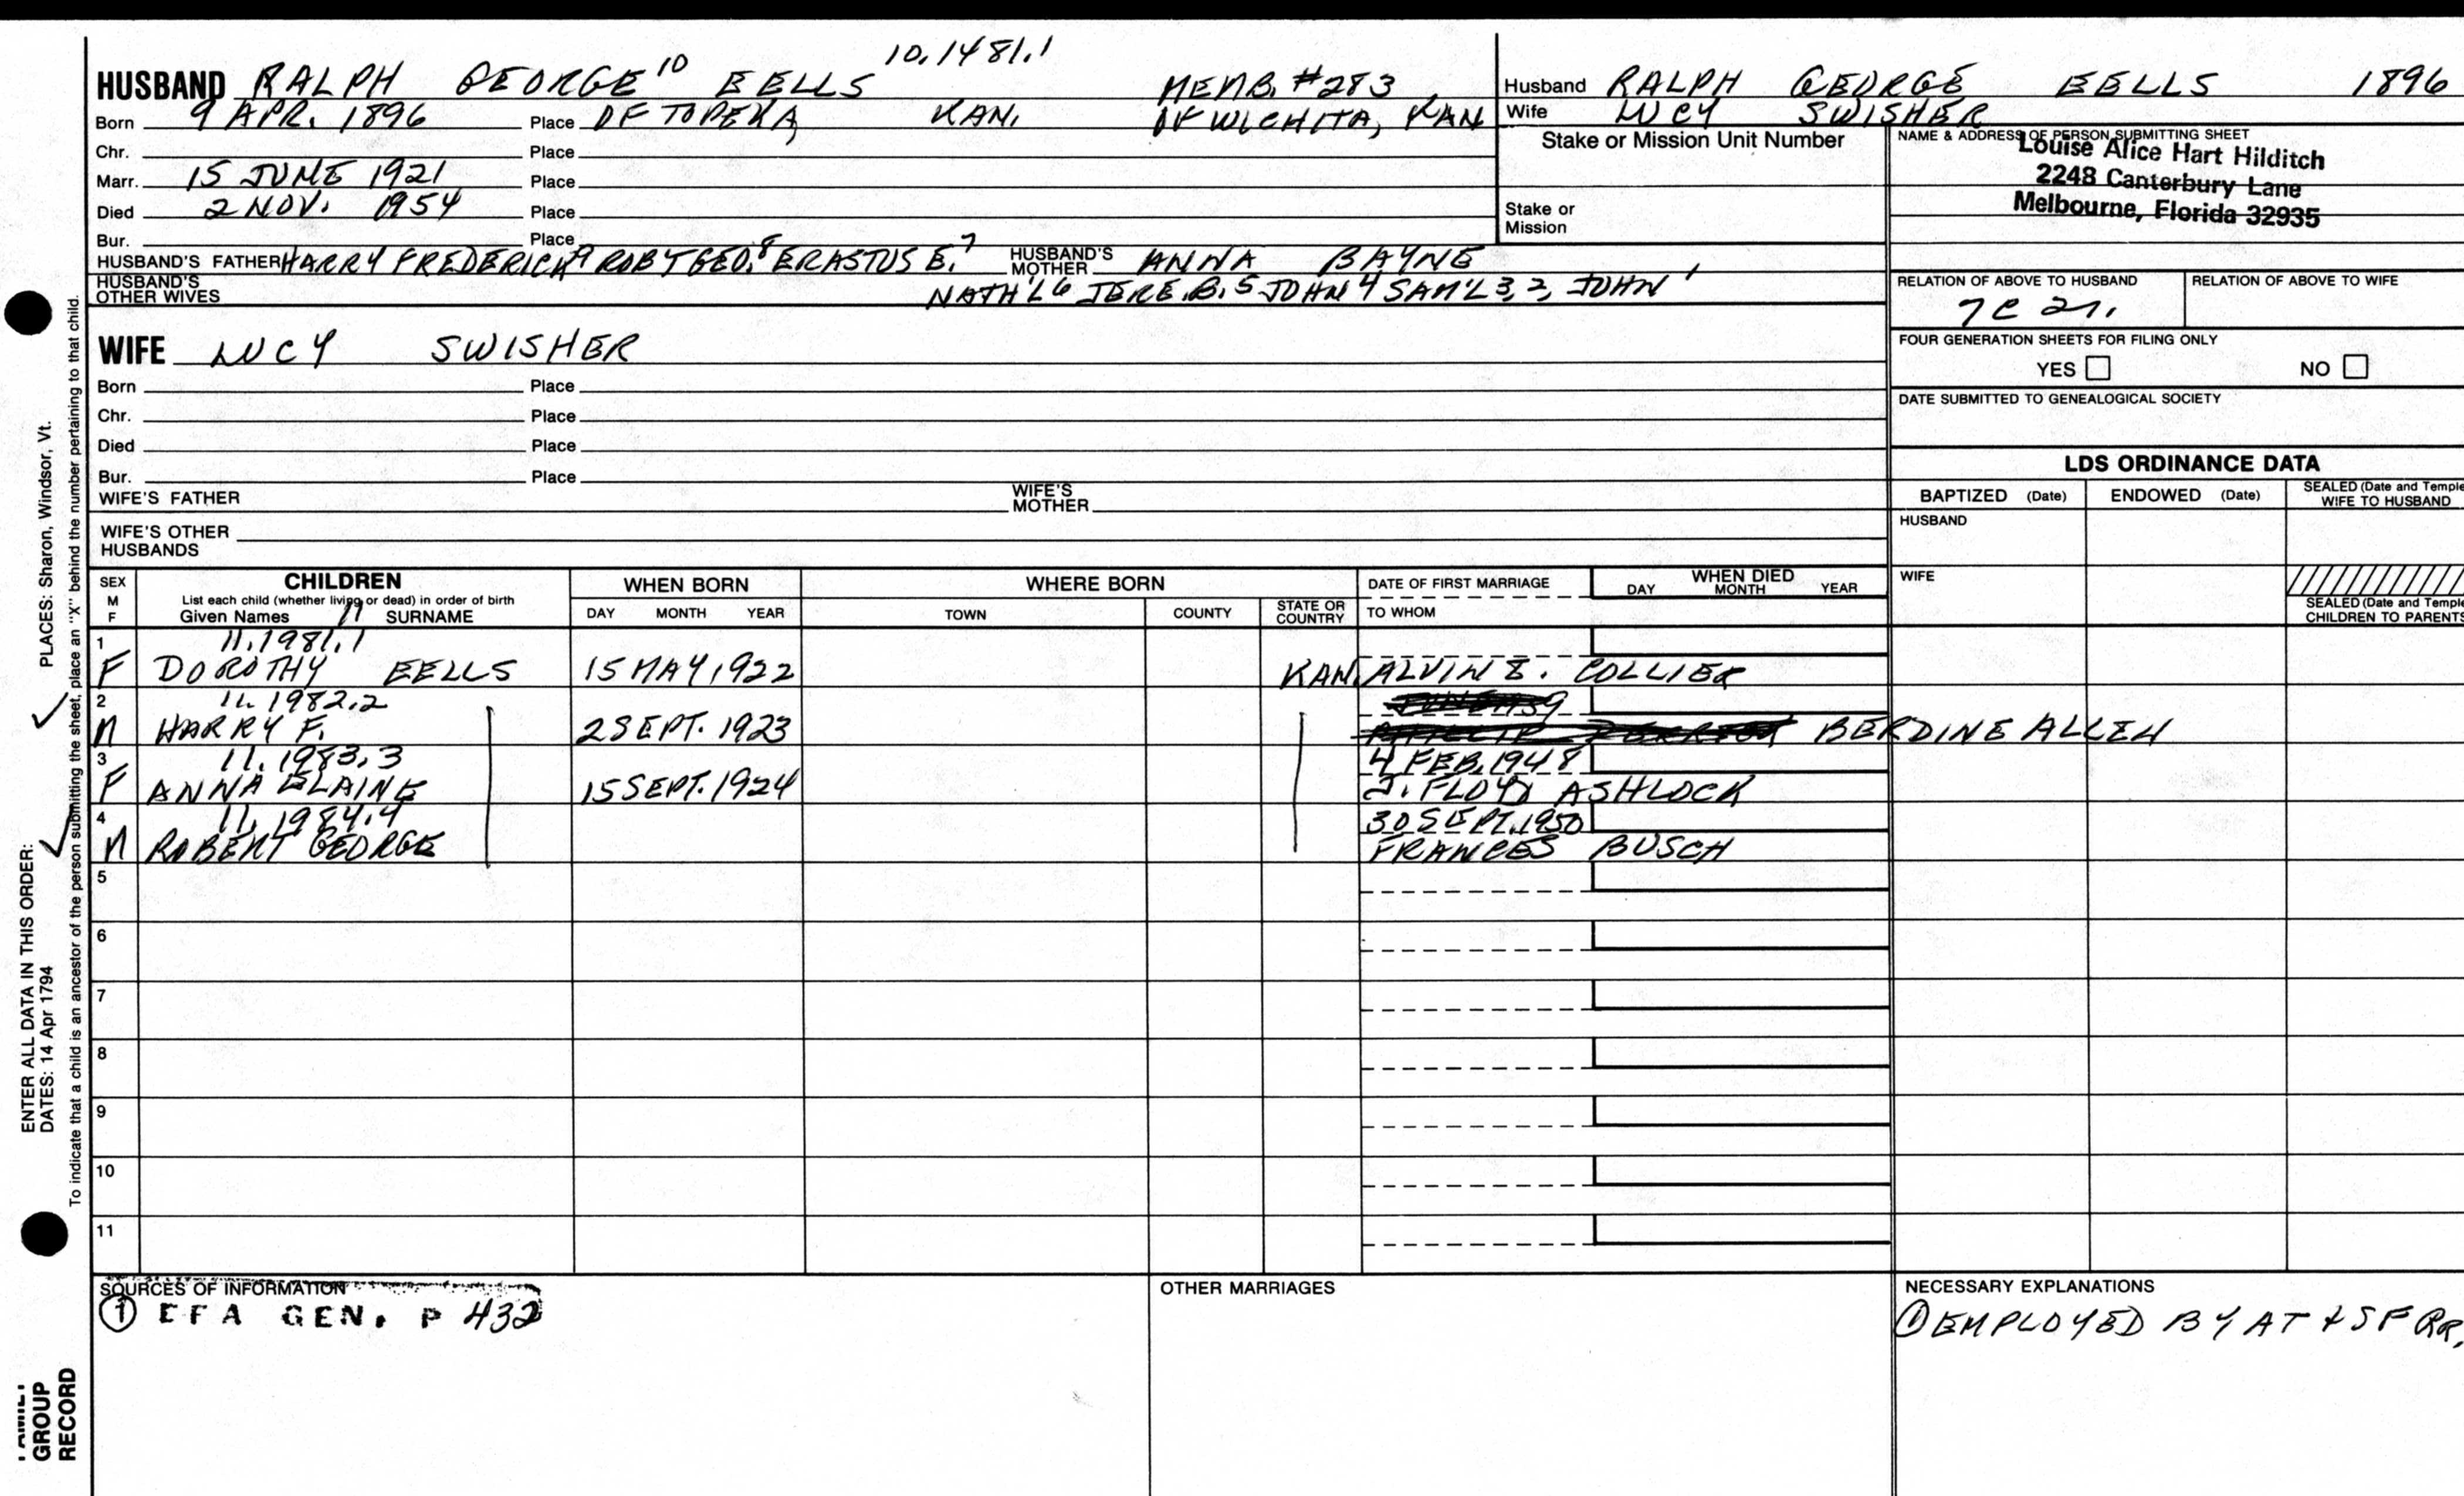 10.1481.1
HUSBAND RALPH GEORGE 10 EELLS MEMB. #283
Born 9 APR. 1896 Place OF TOPEKA, KAN. OF WICHITA, KAN
Chr. Place
Marr. 15 JUNE 1921 Place
Died 2 NOV. 1954 Place
Bur. Place
HUSBAND'S FATHER HARRY FREDERICK 9 ROBT GEO. 8 ERASTUS E. 7 HUSBAND'S MOTHER ANNA BAYNE
HUSBAND'S OTHER WIVES NATH'L 6 JERE. B. 5 JOHN 4 SAM'L 3, 2, JOHN 1
WIFE LUCY SWISHER
Born Place
Chr. Place
Died Place
Bur. Place
WIFE'S FATHER WIFE'S MOTHER
WIFE'S OTHER HUSBANDS
Husband RALPH GEORGE EELLS 1896
Wife LUCY SWISHER
Stake or Mission Unit Number
Stake or Mission
NAME & ADDRESS OF PERSON SUBMITTING SHEET
Louise Alice Hart Hilditch
2248 Canterbury Lane
Melbourne, Florida 32935
RELATION OF ABOVE TO HUSBAND RELATION OF ABOVE TO WIFE
7C 2r.
FOUR GENERATION SHEETS FOR FILING ONLY
YES NO
DATE SUBMITTED TO GENEALOGICAL SOCIETY
LDS ORDINANCE DATA
BAPTIZED (Date) ENDOWED (Date) SEALED (Date and Temple) WIFE TO HUSBAND
HUSBAND
WIFE
SEALED (Date and Temple) CHILDREN TO PARENTS
SEX M F CHILDREN WHEN BORN WHERE BORN DATE OF FIRST MARRIAGE WHEN DIED
List each child (whether living or dead) in order of birth
Given Names 11 SURNAME DAY MONTH YEAR TOWN COUNTY STATE OR COUNTRY TO WHOM DAY MONTH YEAR
1 11.1981.1
F DOROTHY EELLS 15 MAY, 1922 KAN. ALVIN E. COLLIER
2 11.1982.2
M HARRY F. 2 SEPT. 1923 BERDINE ALLEN
3 11.1983.3 4 FEB. 1948
F ANNA ELAINE 15 SEPT. 1924 J. FLOYD ASHLOCK
4 11.1984.4 30 SEPT. 1950
M ROBERT GEORGE FRANCES BUSCH
5
6
7
8
9
10
11
SOURCES OF INFORMATION
① EFA GEN. P 432
OTHER MARRIAGES
NECESSARY EXPLANATIONS
① EMPLOYED BY AT & SF RR.
ENTER ALL DATA IN THIS ORDER:
DATES: 14 Apr 1794 PLACES: Sharon, Windsor, Vt.
To indicate that a child is an ancestor of the person submitting the sheet, place an "X" behind the number pertaining to that child.
FAMILY
GROUP
RECORD